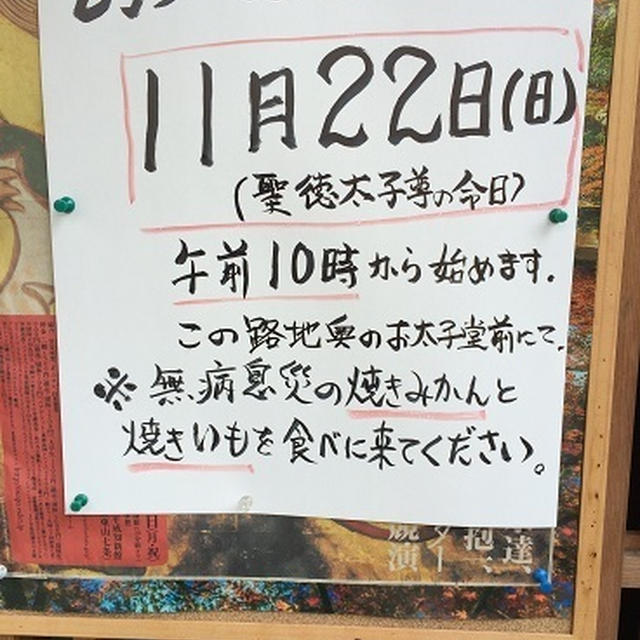 11月22日(日)
(聖徳太子尊の今日)
午前10時から始めます.
この路地奥のお太子堂前にて.
※無病息災の焼きみかんと
焼きいもを食べに来てください。
達、
抱:
ター
競演